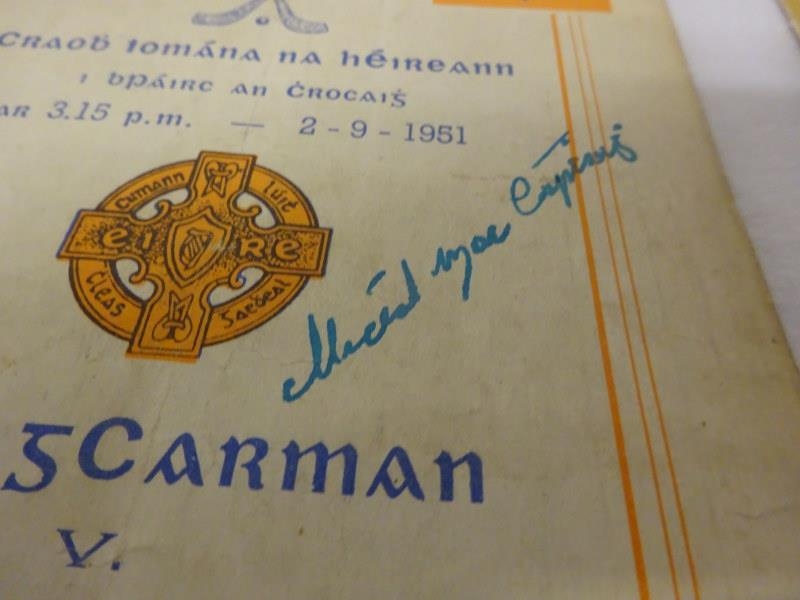 craoḃ iomána na hÉireann
i bPáirc an Ċrocaiġ
ar 3.15 p.m. — 2-9-1951
Cumann Lúiṫ
éire
Ċleas Gaeḋeal
Mícéál Mac
gCarman
v.